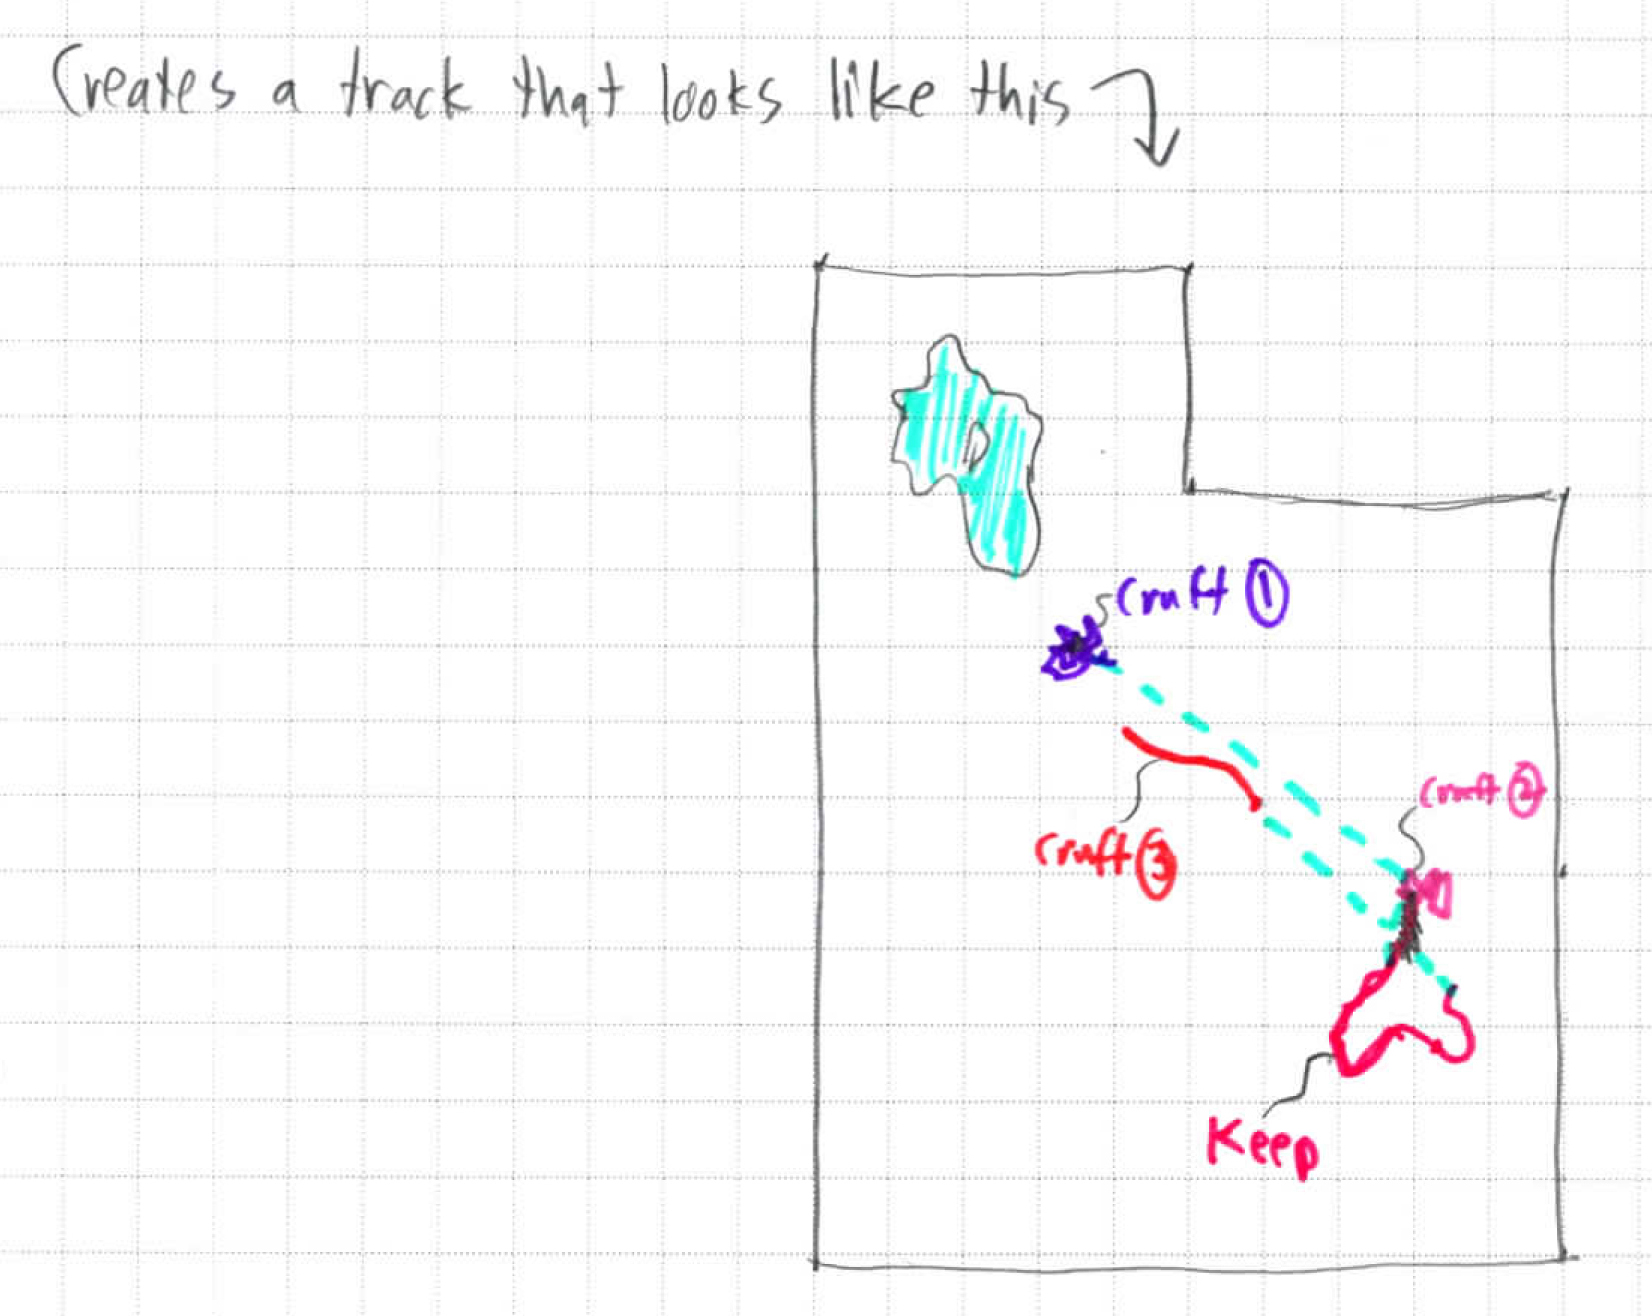 Creates a track that looks like this
Cruft ①
Cruft ②
Cruft ③
Keep